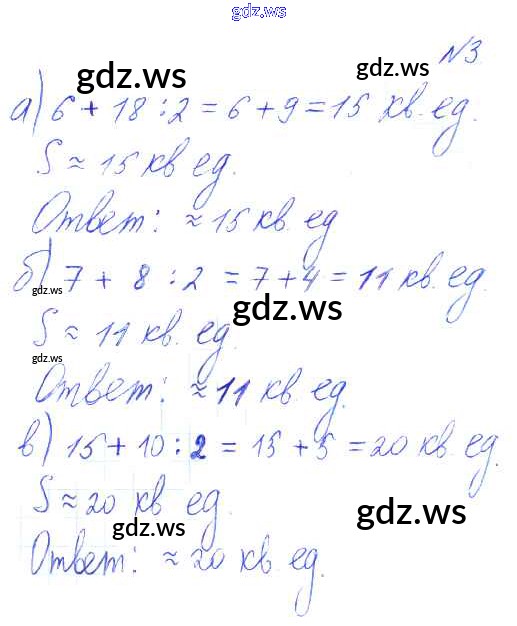 gdz.ws
N3
gdz.ws gdz.ws
а) 6 + 18 : 2 = 6 + 9 = 15 кв. ед.
S ≈ 15 кв ед.
Ответ: ≈ 15 кв. ед
б) 7 + 8 : 2 = 7 + 4 = 11 кв. ед.
gdz.ws gdz.ws
S ≈ 11 кв. ед.
gdz.ws
Ответ: ≈ 11 кв. ед.
в) 15 + 10 : 2 = 15 + 5 = 20 кв. ед.
S ≈ 20 кв ед.
gdz.ws gdz.ws
Ответ: ≈ 20 кв. ед.